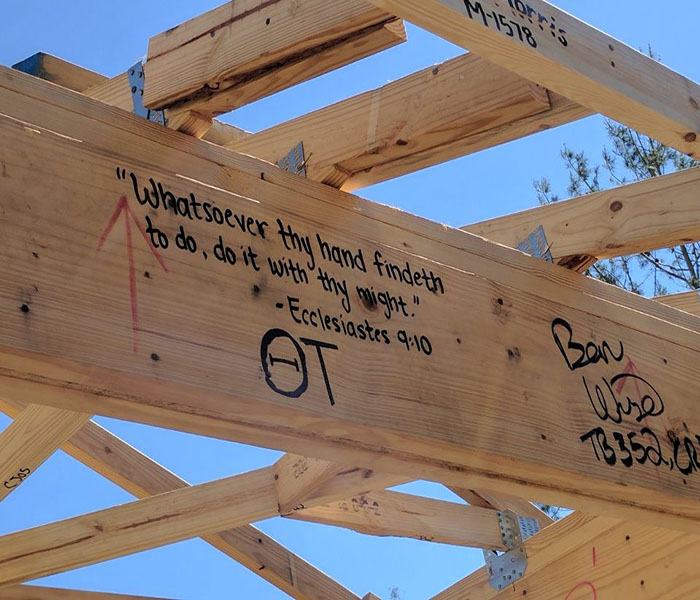 M-1578
"Whatsoever thy hand findeth
to do, do it with thy might."
-Ecclesiastes 9:10
ΘT
Ben
Wise
TB352,
C305